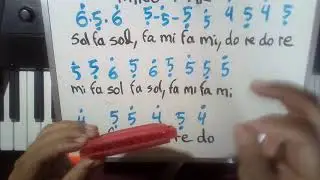 6.5.6 5.5-5 5 4 5 4 5
sol fa sol, fa mi fa mi, do re do re
5 5 6 5 6 5 5 5 5
mi fa sol fa sol, fa mi fa mi
4 5 5 4 5 4
re do